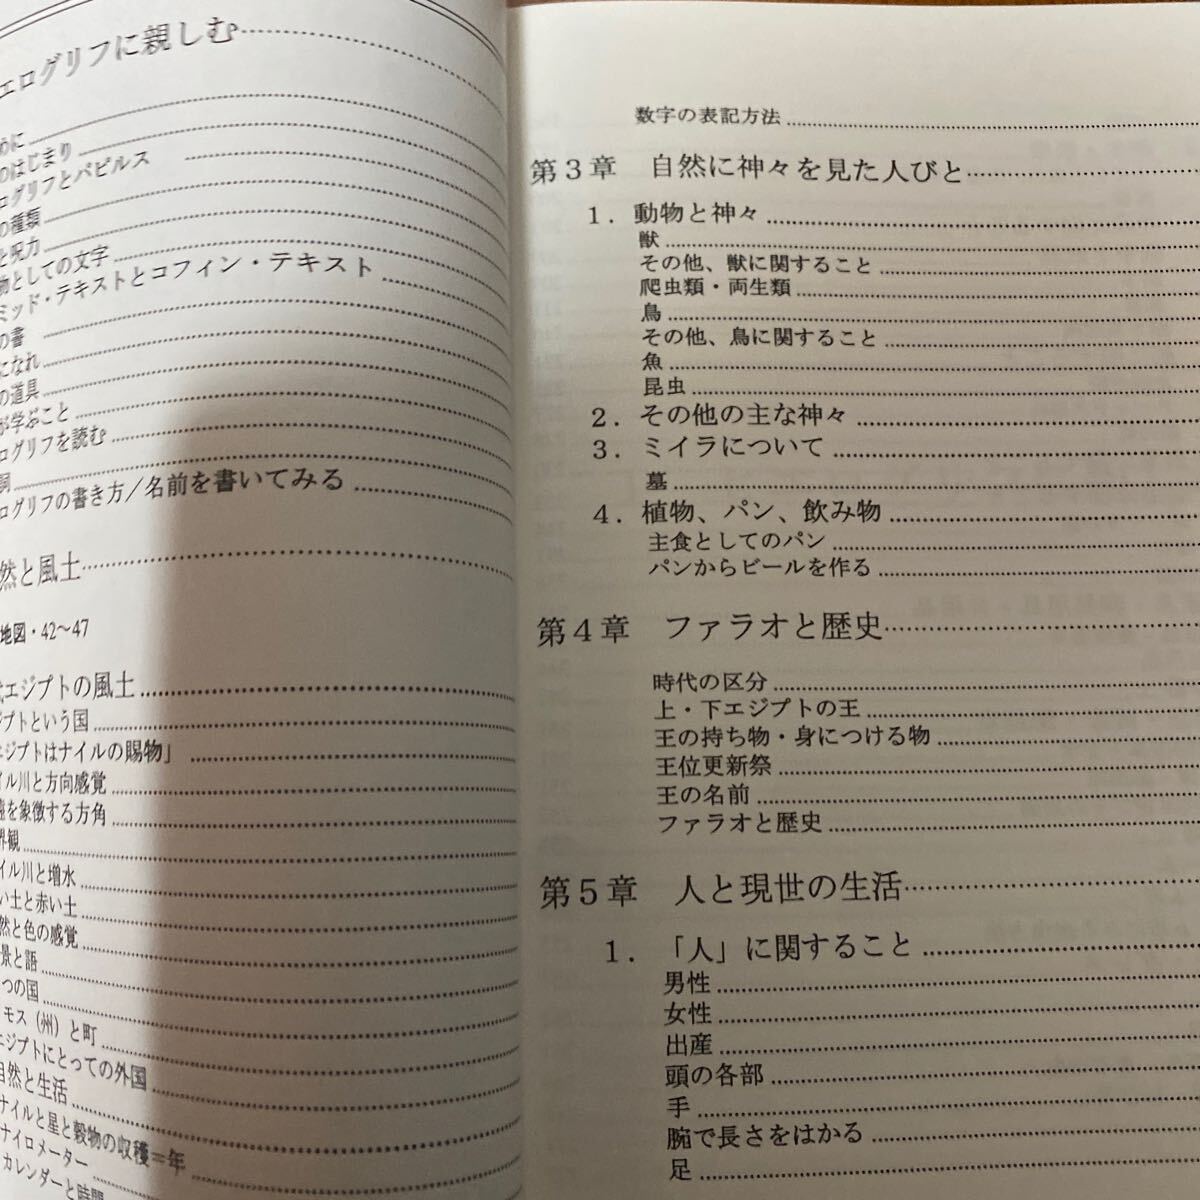 エログリフに親しむ
めに
のはじまり
ログリフとパピルス
の種類
と呪力
物としての文字
ミッド・テキストとコフィン・テキスト
の書
になれ
の道具
が学ぶこと
ログリフを読む
詞
ログリフの書き方／名前を書いてみる
然と風土
地図・42〜47
代エジプトの風土
ジプトという国
エジプトはナイルの賜物」
イル川と方向感覚
遠を象徴する方角
界観
イル川と増水
い土と赤い土
然と色の感覚
景と語
つの国
モス（州）と町
エジプトにとっての外国
自然と生活
ナイルと星と穀物の収穫＝年
ナイロメーター
カレンダーと時間
数字の表記方法
第3章 自然に神々を見た人びと
1. 動物と神々
獣
その他、獣に関すること
爬虫類・両生類
鳥
その他、鳥に関すること
魚
昆虫
2. その他の主な神々
3. ミイラについて
墓
4. 植物、パン、飲み物
主食としてのパン
パンからビールを作る
第4章 ファラオと歴史
時代の区分
上・下エジプトの王
王の持ち物・身につける物
王位更新祭
王の名前
ファラオと歴史
第5章 人と現世の生活
1. 「人」に関すること
男性
女性
出産
頭の各部
手
腕で長さをはかる
足